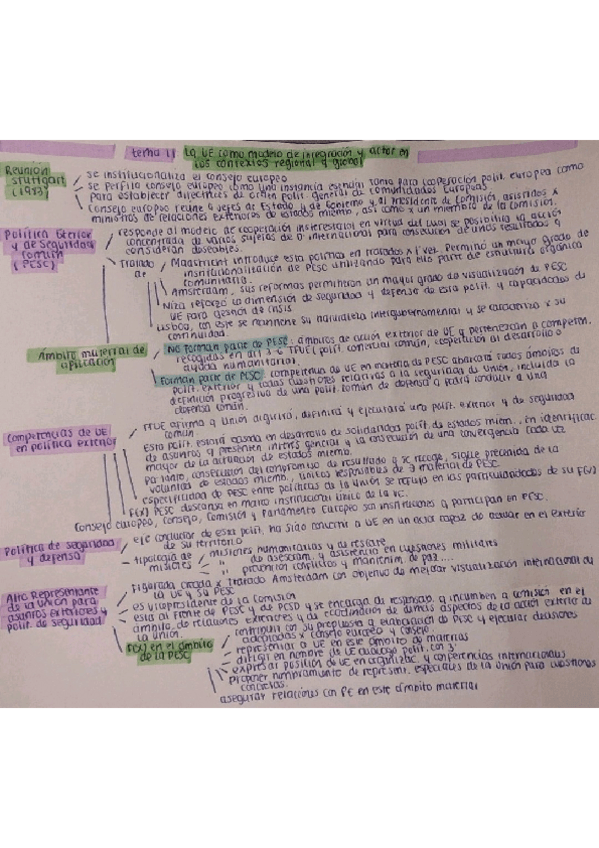 tema 11: La UE como modelo de integración y actor en
los contextos regional y global
Reunión
Stuttgart
(1983)
se institucionaliza el consejo europeo
se perfila consejo europeo como una instancia para cooperación polít. europea como
para establecer directrices de orden polít. general de comunidades europeas
Consejo europeo reúne a jefes de Estado y de Gobierno y al Presidente de Comisión, asistidos x
ministros de relaciones exteriores de estados miemb, así como x un miembro de la comisión.
Política Exterior
y de Seguridad
común
(PESC)
responde al modelo de cooperación interestatal en virtud del cual se posibilita la acción
concertada de varios sujetos de D. internacional para consecución de unos resultados q
consideran deseables.
Tratado de
Maastricht introduce esta política en tratados x 1ª vez. Permitió un mayor grado de
institucionalización de PESC utilizando para ello parte de estructura orgánica
comunitaria.
Amsterdam, sus reformas permitieron un mayor grado de visualización de PESC
Niza reforzó la dimensión de seguridad y defensa de esta polít. y capacidades de
UE para gestión de crisis
Lisboa, con este se mantiene su naturaleza intergubernamental y se caracteriza x su
continuidad.
Ámbito material de
aplicación
No forman parte de PESC: ámbitos de acción exterior de UE q pertenezcan a competen.
recogidas en art 3-6 TFUE (polít. comercial común, cooperación al desarrollo o
ayuda humanitaria).
Forman parte de PESC: competencia de UE en materia de PESC abarcará todos ámbitos de
polít. exterior y todas cuestiones relativas a la seguridad de Unión, incluida la
definición progresiva de una polít. común de defensa q podrá conducir a una
defensa común.
Competencias de UE
en política exterior
TFUE afirma q Unión dirigirá, definirá y ejecutará una polít. exterior y de seguridad
común
Esta polít. estará basada en desarrollo de solidaridad polít. de estados miem., en identificac.
de asuntos q presenten interés general y la consecución de una convergencia cada vez
mayor de la actuación de estados miemb.
Por tanto, consecución del compromiso de resultado q se recoge, sigue precedida de la
voluntad de estados miemb., únicos responsables de materia de PESC.
especificidad de PESC entre políticas de la Unión se refleja en las particularidades de su F(x)
F(x) PESC descansa en marco institucional único de la UE.
Consejo europeo, consejo, Comisión y Parlamento Europeo son instituciones q participan en PESC.
Política de seguridad
y defensa
eje conductor de esta polít. ha sido convertir a UE en un actor capaz de actuar en el exterior
de su territorio
tipología de
misiones
misiones humanitarias y de rescate
" de asesoram. y asistencia en cuestiones militares
" prevención conflictos y mantenim. de paz....
Alto Representante
de la Unión para
asuntos exteriores y
polít. de seguridad
Figura creada x tratado Amsterdam con objetivo de mejorar visualización internacional de
la UE y su PESC
es vicepresidente de la Comisión
está al frente de PESC y de PCSD y se encarga de responsab. q incumben a comisión en el
ámbito de relaciones exteriores y de coordinación de demás aspectos de la acción exterior de
la Unión.
F(x) en el ámbito
de la PESC
contribuir con su propuesta a elaboración de PESC y ejecutar decisiones
adoptadas x consejo europeo y consejo.
representar a UE en este ámbito de materias
dirigir en nombre de UE diálogo polít. con 3º
expresar posición de UE en organizac. y conferencias internacionales
Proponer nombramiento de represent. especiales de la Unión para cuestiones
concretas.
asegurar relaciones con PE en este ámbito material